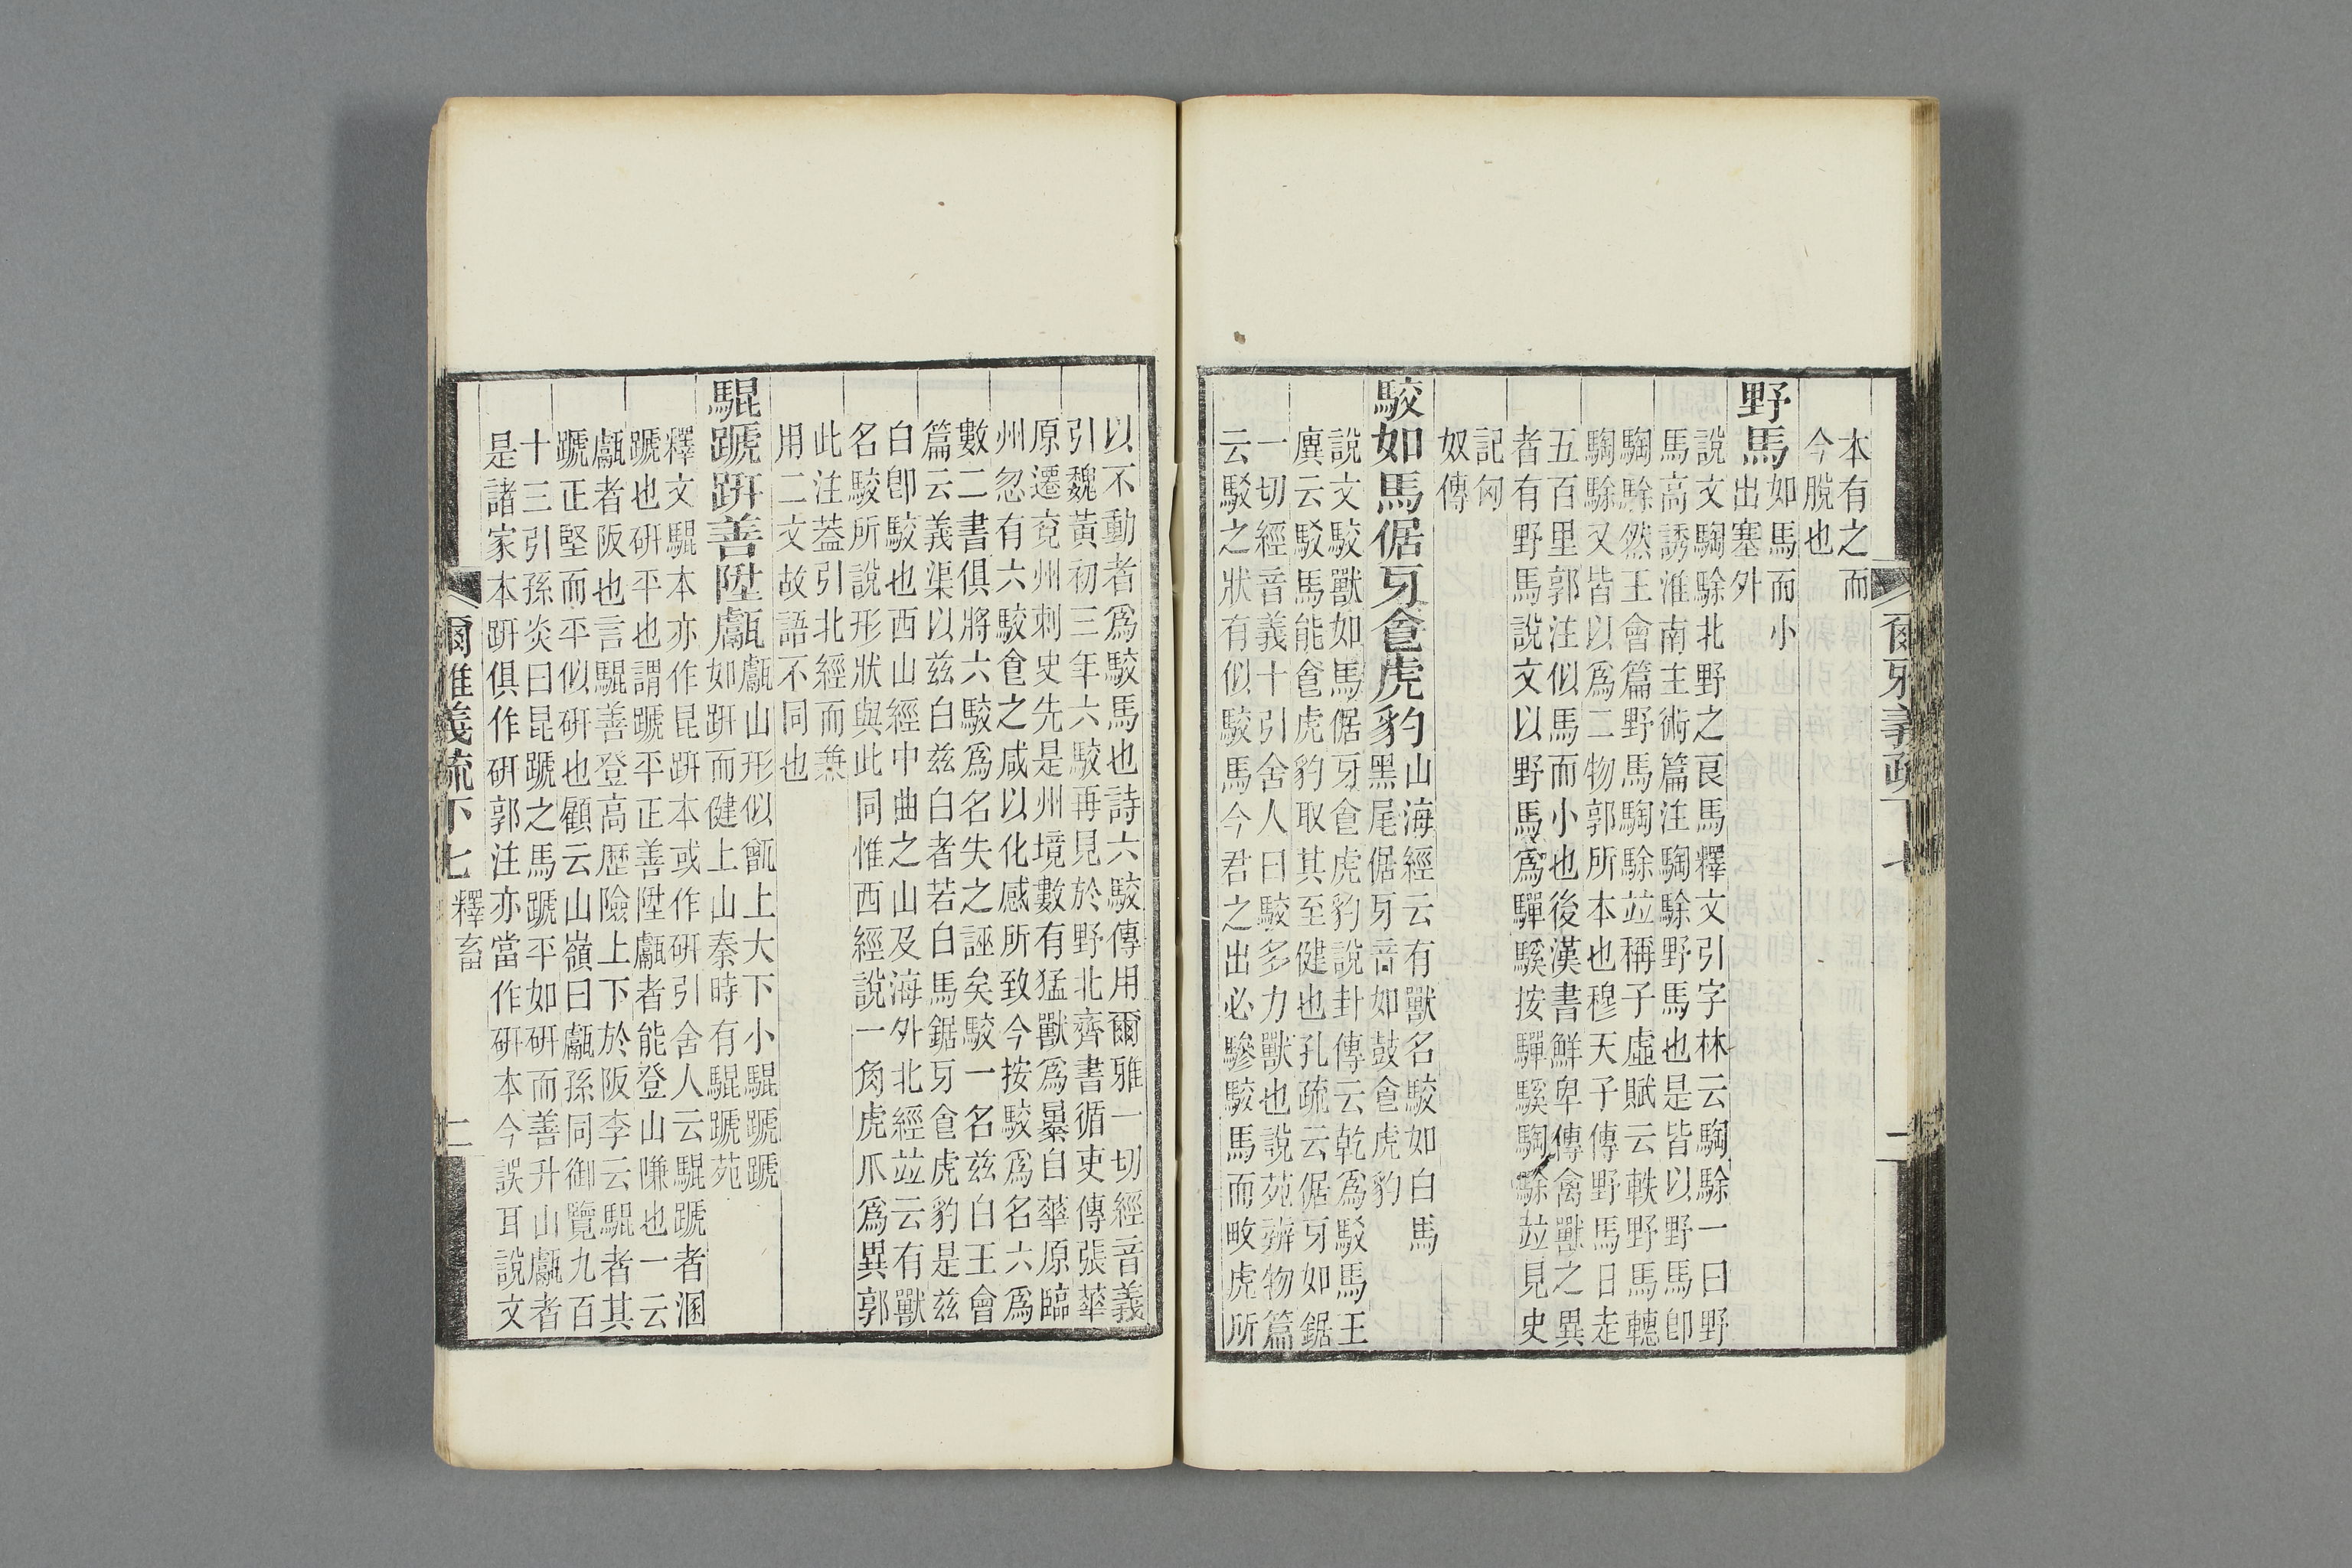 爾雅義疏下七
二
本有之而
今脫也
野馬如馬而小
出塞外
說文騊駼北野之良馬釋文引字林云騊駼一曰野
馬高誘淮南主術篇注騊駼野馬也是皆以野馬卽
騊駼然王會篇野馬騊駼竝稱子虛賦云軼野馬轊
騊駼又皆以爲二物郭所本也穆天子傳野馬日走
五百里郭注似馬而小也後漢書鮮卑傳禽獸之異
者有野馬說文以野馬爲驒騱按驒騱騊駼竝見史
記匈
奴傳
駮如馬倨牙食虎豹山海經云有獸名駮如白馬
黑尾倨牙音如鼓食虎豹
說文駮獸如馬倨牙食虎豹說卦傳云乾爲駁馬王
廙云駁馬能食虎豹取其至健也孔疏云倨牙如鋸
一切經音義十引舍人曰駮多力獸也說苑辨物篇
云駁之狀有似駮馬今君之出必驂駮馬而畋虎所
以不動者爲駮馬也詩六駮傳用爾雅一切經音義
引魏黃初三年六駮再見於野北齊書循吏傳張華
原遷兗州刺史先是州境數有猛獸爲暴自華原臨
州忽有六駮食之咸以化感所致今按駮爲名六爲
數二書俱將六駮爲名失之誣矣駮一名兹白王會
篇云義渠以兹白兹白者若白馬鋸牙食虎豹是兹
白卽駮也西山經中曲之山及海外北經竝云有獸
名駮所說形狀與此同惟西經說一角虎爪爲異郭
此注葢引北經而兼
用二文故語不同也
騉蹏趼善陞甗甗山形似甑上大下小騉蹏蹏
如趼而健上山秦時有騉蹏苑
釋文騉本亦作昆趼本或作研引舍人云騉蹏者溷
蹏也研平也謂蹏平正善陞甗者能登山隒也一云
甗者阪也言騉善登高歷險上下於阪李云騉者其
蹏正堅而平似研也顧云山嶺曰甗孫同御覽九百
十三引孫炎曰昆蹏之馬蹏平如研而善升山甗者
是諸家本趼俱作研郭注亦當作研本今誤耳說文
爾雅義疏下七 釋畜
二